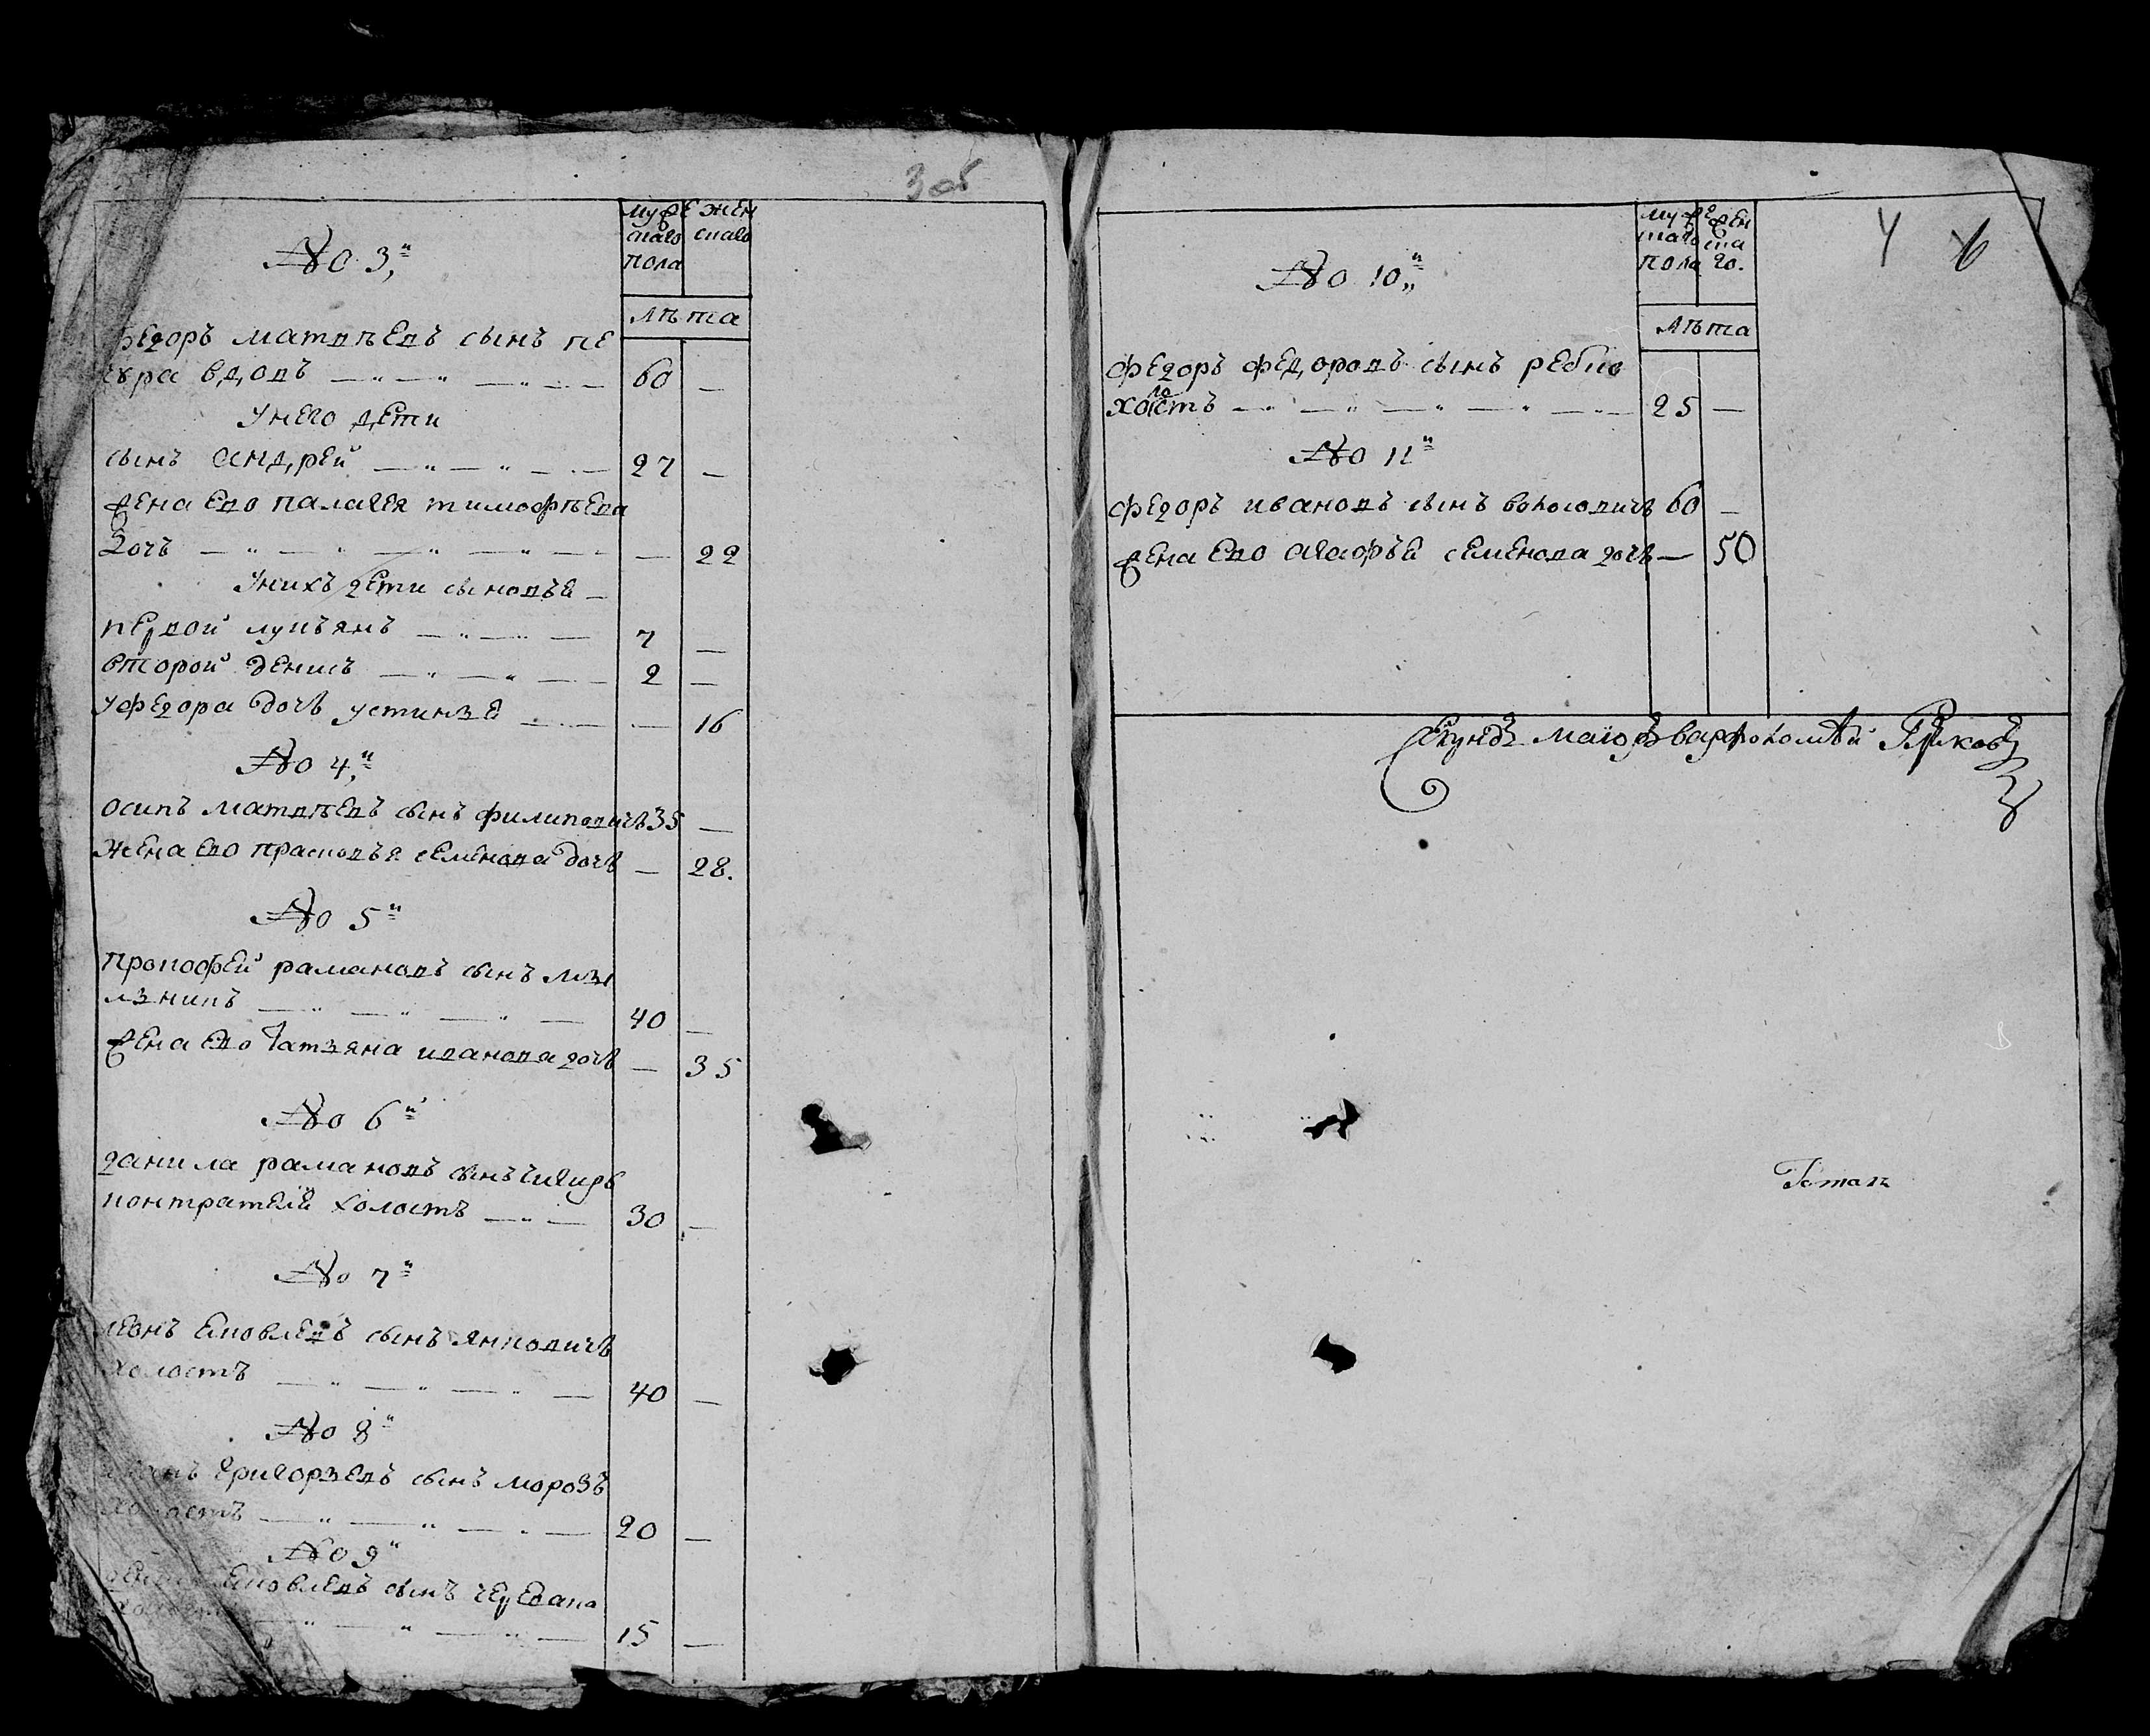 3 об
муже жен
скаго скаго
пола
лѣта
No 3,
Федоръ матвѣевъ сынъ пе
чура вдовъ 60 —
У него дети
сынъ Андрей 27 —
жена ево палагея тимофѣева
дочь — 22
У нихъ дети сыновья
первой лукъянъ 7 —
второй денисъ 2 —
у федора дочь устинья — 16
No 4,
осипъ матвѣевъ сынъ филиповичь 35 —
жена ево прасковья семенова дочь — 28.
No 5
прокофей рамановъ сынъ мы
льникъ 40 —
жена ево татьяна иванова дочь — 35
No 6
данила рамановъ сынъ
контратей холостъ 30 —
No 7
леонъ яковлевъ сынъ янковичь
холостъ 40 —
No 8
иванъ григорьевъ сынъ морозъ
холостъ 20 —
No 9
яковлевъ сынъ
холостъ 15 —
4 6
муже жен
скаго ска
пола го.
лѣта
No 10
Федоръ федоровъ сынъ
холостъ 25 —
No 11
Федоръ ивановъ сынъ 60 —
жена ево агафья семенова дочь — 50
Секундъ маіоръ варфоломѣй